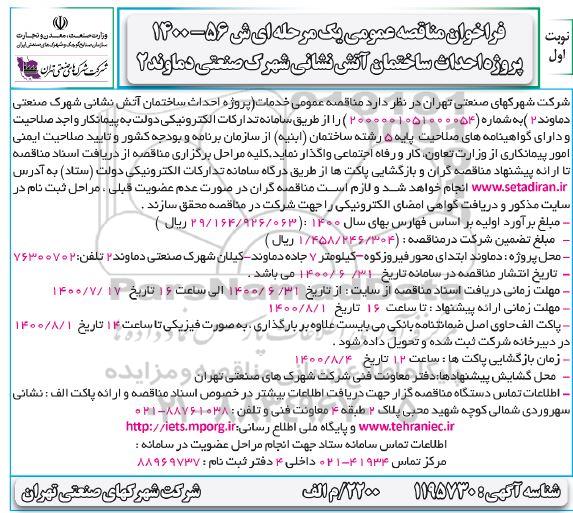 وزارت صنعت، معدن و تجارت
سازمان صنایع کوچک و شهرکهای صنعتی ایران
شرکت شهرکهای صنعتی تهران
فراخوان مناقصه عمومی یک مرحله ای ش ۵۶-۱۴۰۰
پروژه احداث ساختمان آتش نشانی شهرک صنعتی دماوند۲
نوبت اول
شرکت شهرکهای صنعتی تهران در نظر دارد مناقصه عمومی خدمات(پروژه احداث ساختمان آتش نشانی شهرک صنعتی
دماوند۲ )به شماره (۲۰۰۰۰۰۱۰۵۱۰۰۰۰۵۴) را از طریق سامانه تدارکات الکترونیکی دولت به پیمانکار واجد صلاحیت
و دارای گواهینامه های صلاحیت پایه ۵ رشته ساختمان (ابنیه) از سازمان برنامه و بودجه کشور و تایید صلاحیت ایمنی
امور پیمانکاری از وزارت تعاون، کار و رفاه اجتماعی واگذار نماید.کلیه مراحل برگزاری مناقصه از دریافت اسناد مناقصه
تا ارائه پیشنهاد مناقصه گران و بازگشایی پاکت ها از طریق درگاه سامانه تدارکات الکترونیکی دولت (ستاد) به آدرس
www.setadiran.ir انجام خواهد شد و لازم است مناقصه گران در صورت عدم عضویت قبلی ، مراحل ثبت نام در
سایت مذکور و دریافت گواهی امضای الکترونیکی را جهت شرکت در مناقصه محقق سازند .
- مبلغ برآورد اولیه بر اساس فهارس بهای سال ۱۴۰۰ :( ۲۹/۱۶۴/۹۲۶/۰۶۳ ریال )
- مبلغ تضمین شرکت درمناقصه : (۱/۴۵۸/۲۴۶/۳۰۴ ریال )
- محل پروژه : دماوند ابتدای محور فیروزکوه-کیلومتر ۷ جاده دماوند-کیلان شهرک صنعتی دماوند۲ تلفن:۷۶۳۰۰۷۰۲
- تاریخ انتشار مناقصه در سامانه تاریخ ۱۴۰۰/۶/۳۱ می باشد .
- مهلت زمانی دریافت اسناد مناقصه از سایت : از تاریخ ۱۴۰۰/۶/۳۱ الی ساعت ۱۶ تاریخ ۱۴۰۰/۷/۱۷
- مهلت زمانی ارائه پیشنهاد : تا ساعت ۱۶ تاریخ ۱۴۰۰/۸/۱
- پاکت الف حاوی اصل ضمانتنامه بانکی می بایست علاوه بر بارگذاری ، به صورت فیزیکی تا ساعت ۱۴ تاریخ ۱۴۰۰/۸/۱
در دبیرخانه شرکت ثبت شده و تحویل داده شود .
- زمان بازگشایی پاکت ها : ساعت ۱۲ تاریخ ۱۴۰۰/۸/۴
- محل گشایش پیشنهادها:دفتر معاونت فنی شرکت شهرک های صنعتی تهران
- اطلاعات تماس دستگاه مناقصه گزار جهت دریافت اطلاعات بیشتر در خصوص اسناد مناقصه و ارائه پاکت الف : نشانی
سهروردی شمالی کوچه شهید محبی پلاک ۲ طبقه ۴ معاونت فنی و تلفن : ۸۸۷۶۱۰۳۸-۰۲۱
www.tehraniec.ir و پایگاه ملی اطلاع رسانی:http://iets.mporg.ir
اطلاعات تماس سامانه ستاد جهت انجام مراحل عضویت در سامانه :
مرکز تماس ۴۱۹۳۴-۰۲۱ داخلی ۴ دفتر ثبت نام : ۸۸۹۶۹۷۳۷
شناسه آگهی : ۱۱۹۵۷۳۰
۲۲۰۰/م الف
شرکت شهرکهای صنعتی تهران